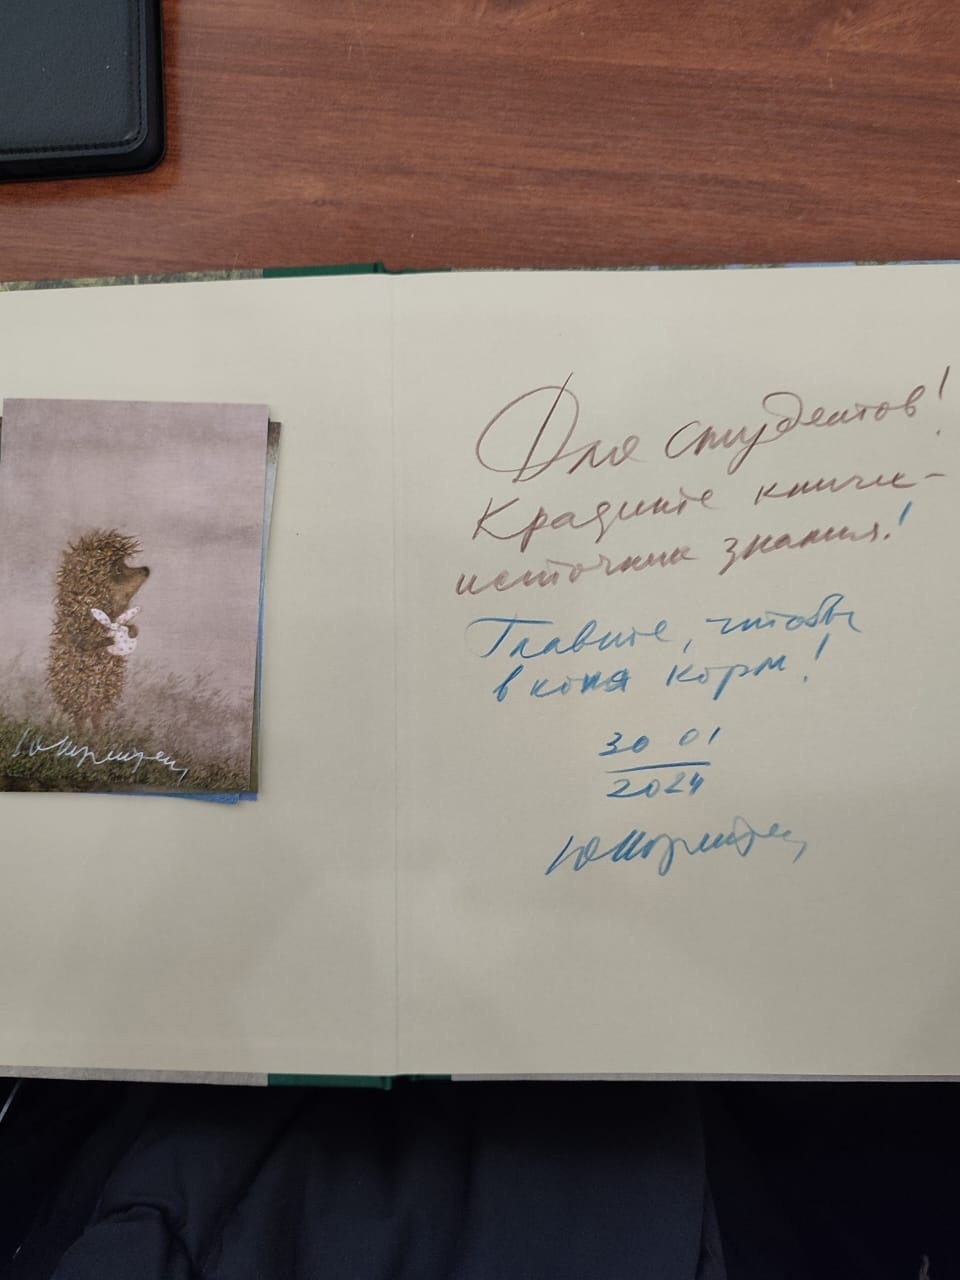 Для студентов!
Крадите книги -
источник знания!
Главное, чтобы
в коня корм!
30 01
2024
ЮНорштейн
ЮНорштейн